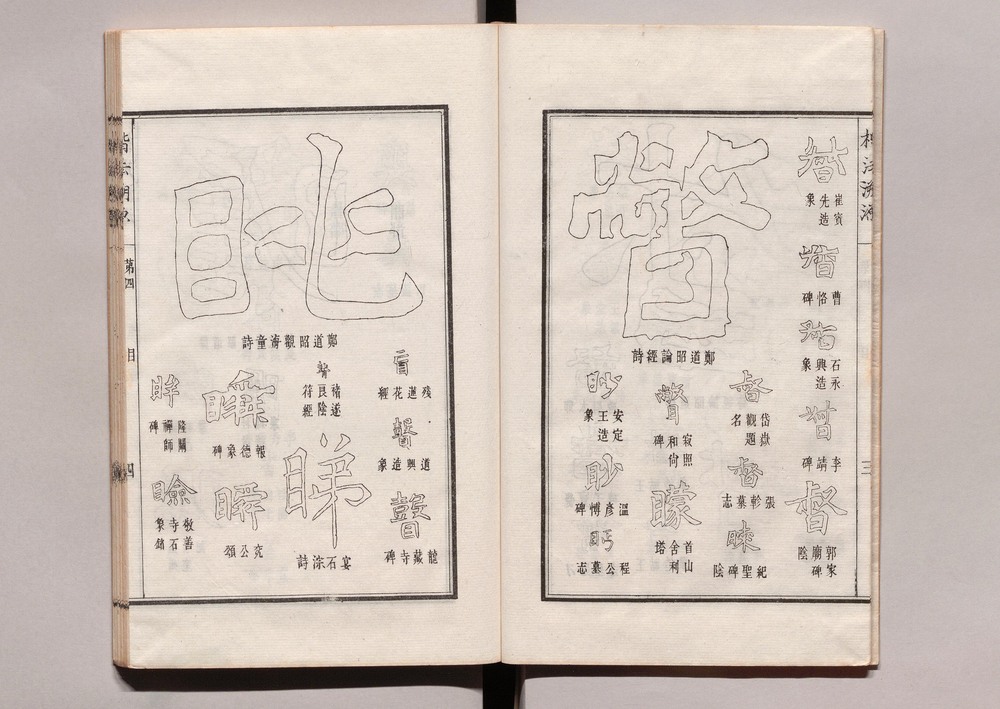 楷法溯源
三
督
崔賓先造象
督
曹恪碑
督
石永興造象
督
李靖碑
督
郭家廟碑陰
鄭道昭論經詩
督
岱嶽觀題名
督
張軫墓志
昧
紀聖碑陰
瞥
寂照和尚碑
矇
首山舍利塔
眇
安定王造象
眇
溫彥博碑
眄
程公墓志
盲
殘蓮花經
瞽
道興造象
瞽
龍藏寺碑
眺
鄭道昭觀海童詩
褚遂良陰符經
睇
宴石淙詩
瞬
報德象碑
瞬
兗公頌
眸
隆闡禪師碑
瞼
敬善寺石象銘
第四
目
四